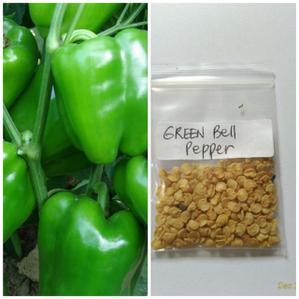 GREEN Bell
Pepper